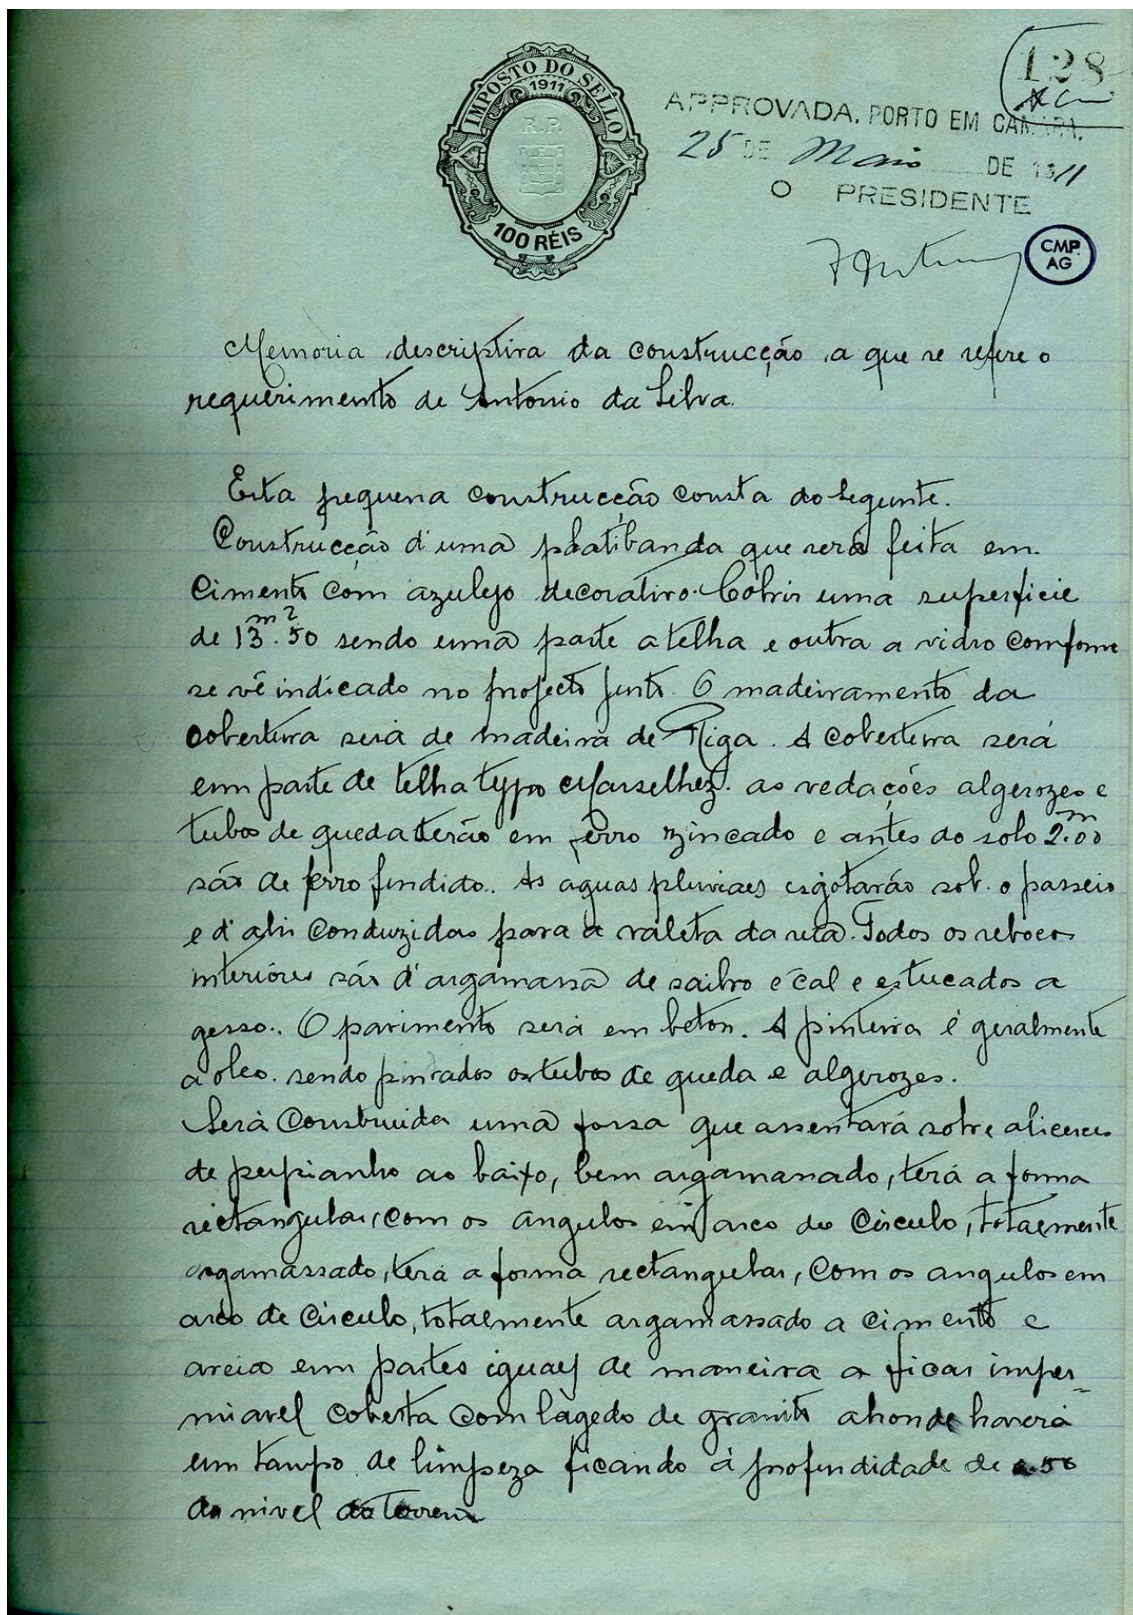 128
IMPOSTO DO SELLO
1911
R.P.
100 RÉIS
APPROVADA. PORTO EM CAMARA,
25 DE Maio DE 1911
O PRESIDENTE
CMP.
AG
Memoria descriptiva da construcção a que se refere o
requerimento de Antonio da Silva.
Esta pequena construcção consta do seguinte.
Construcção d'uma platibanda que será feita em
cimento com azulejo decorativo. Cobrir uma superficie
de 13.50 m2 sendo uma parte a telha e outra a vidro comforme
se vê indicado no projecto junto. O madeiramento da
cobertura será de madeira de Riga. A cobertura será
em parte de telha typo Marselhez. as vedações algerozes e
tubos de queda terão em ferro zincado e antes do solo 2.00 m
são de ferro fundido.. As aguas pluviaes esgotarão sob. o passeio
e d'ahi conduzidas para a valeta da rua. Todos os rebocos
interiores são d'argamassa de saibro e cal e estucados a
gesso.. O pavimento será em beton. A pintura é geralmente
a oleo. sendo pintados os tubos de queda e algerozes.
Será construida uma fossa que assentará sobre alicerces
de perpianho ao baixo, bem argamassado, terá a forma
rectangular, com os angulos em arco de circulo, totalmente
argamassado, terá a forma rectangular, com os angulos em
arco de circulo, totalmente argamassado a cimento e
areia em partes iguaes de maneira a ficar imper=
miavel coberta com lagedo de granito ahonde haverá
um tampo de limpeza ficando á profundidade de 0.50
do nivel do terreno